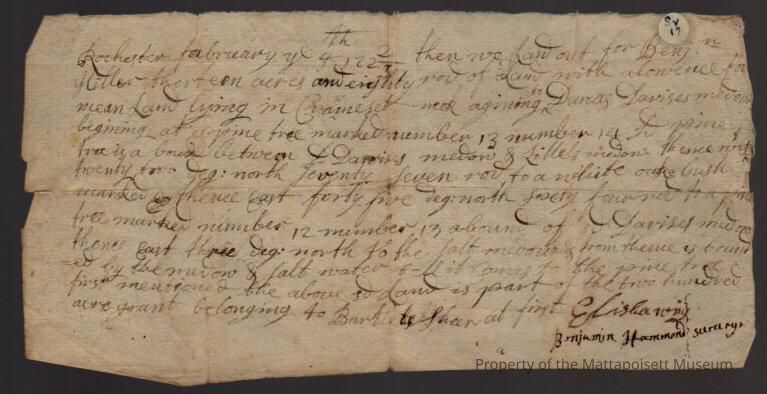 Rochester fabruary ye 4th 172 then we Laid out for Benjn
Miller therteen acres and eighty rod of Land with alowence for
mean Land lying in Cromeset neck agining Davisès medow
begining at a pine tree marked number 13 number 14 sd pine
tree is a boun between sd Davises medow & Littels medow thence
twenty two deg: north seventy seven rod to a white oake bush
marked thence east forty five deg: north four rod to a pine
tree marked number 12 number 13 a bound of sd Davises medow
thence east three deg: north to the salt medow & from thence is bound
=ed by the medow & salt water till it comes to the pine tree
first mentioned the above sd Land is part of the two hundred
acre grant belonging to share at first Elisha wing
Benjamin Hammond survayr
SV
17
Property of the Mattapoisett Museum